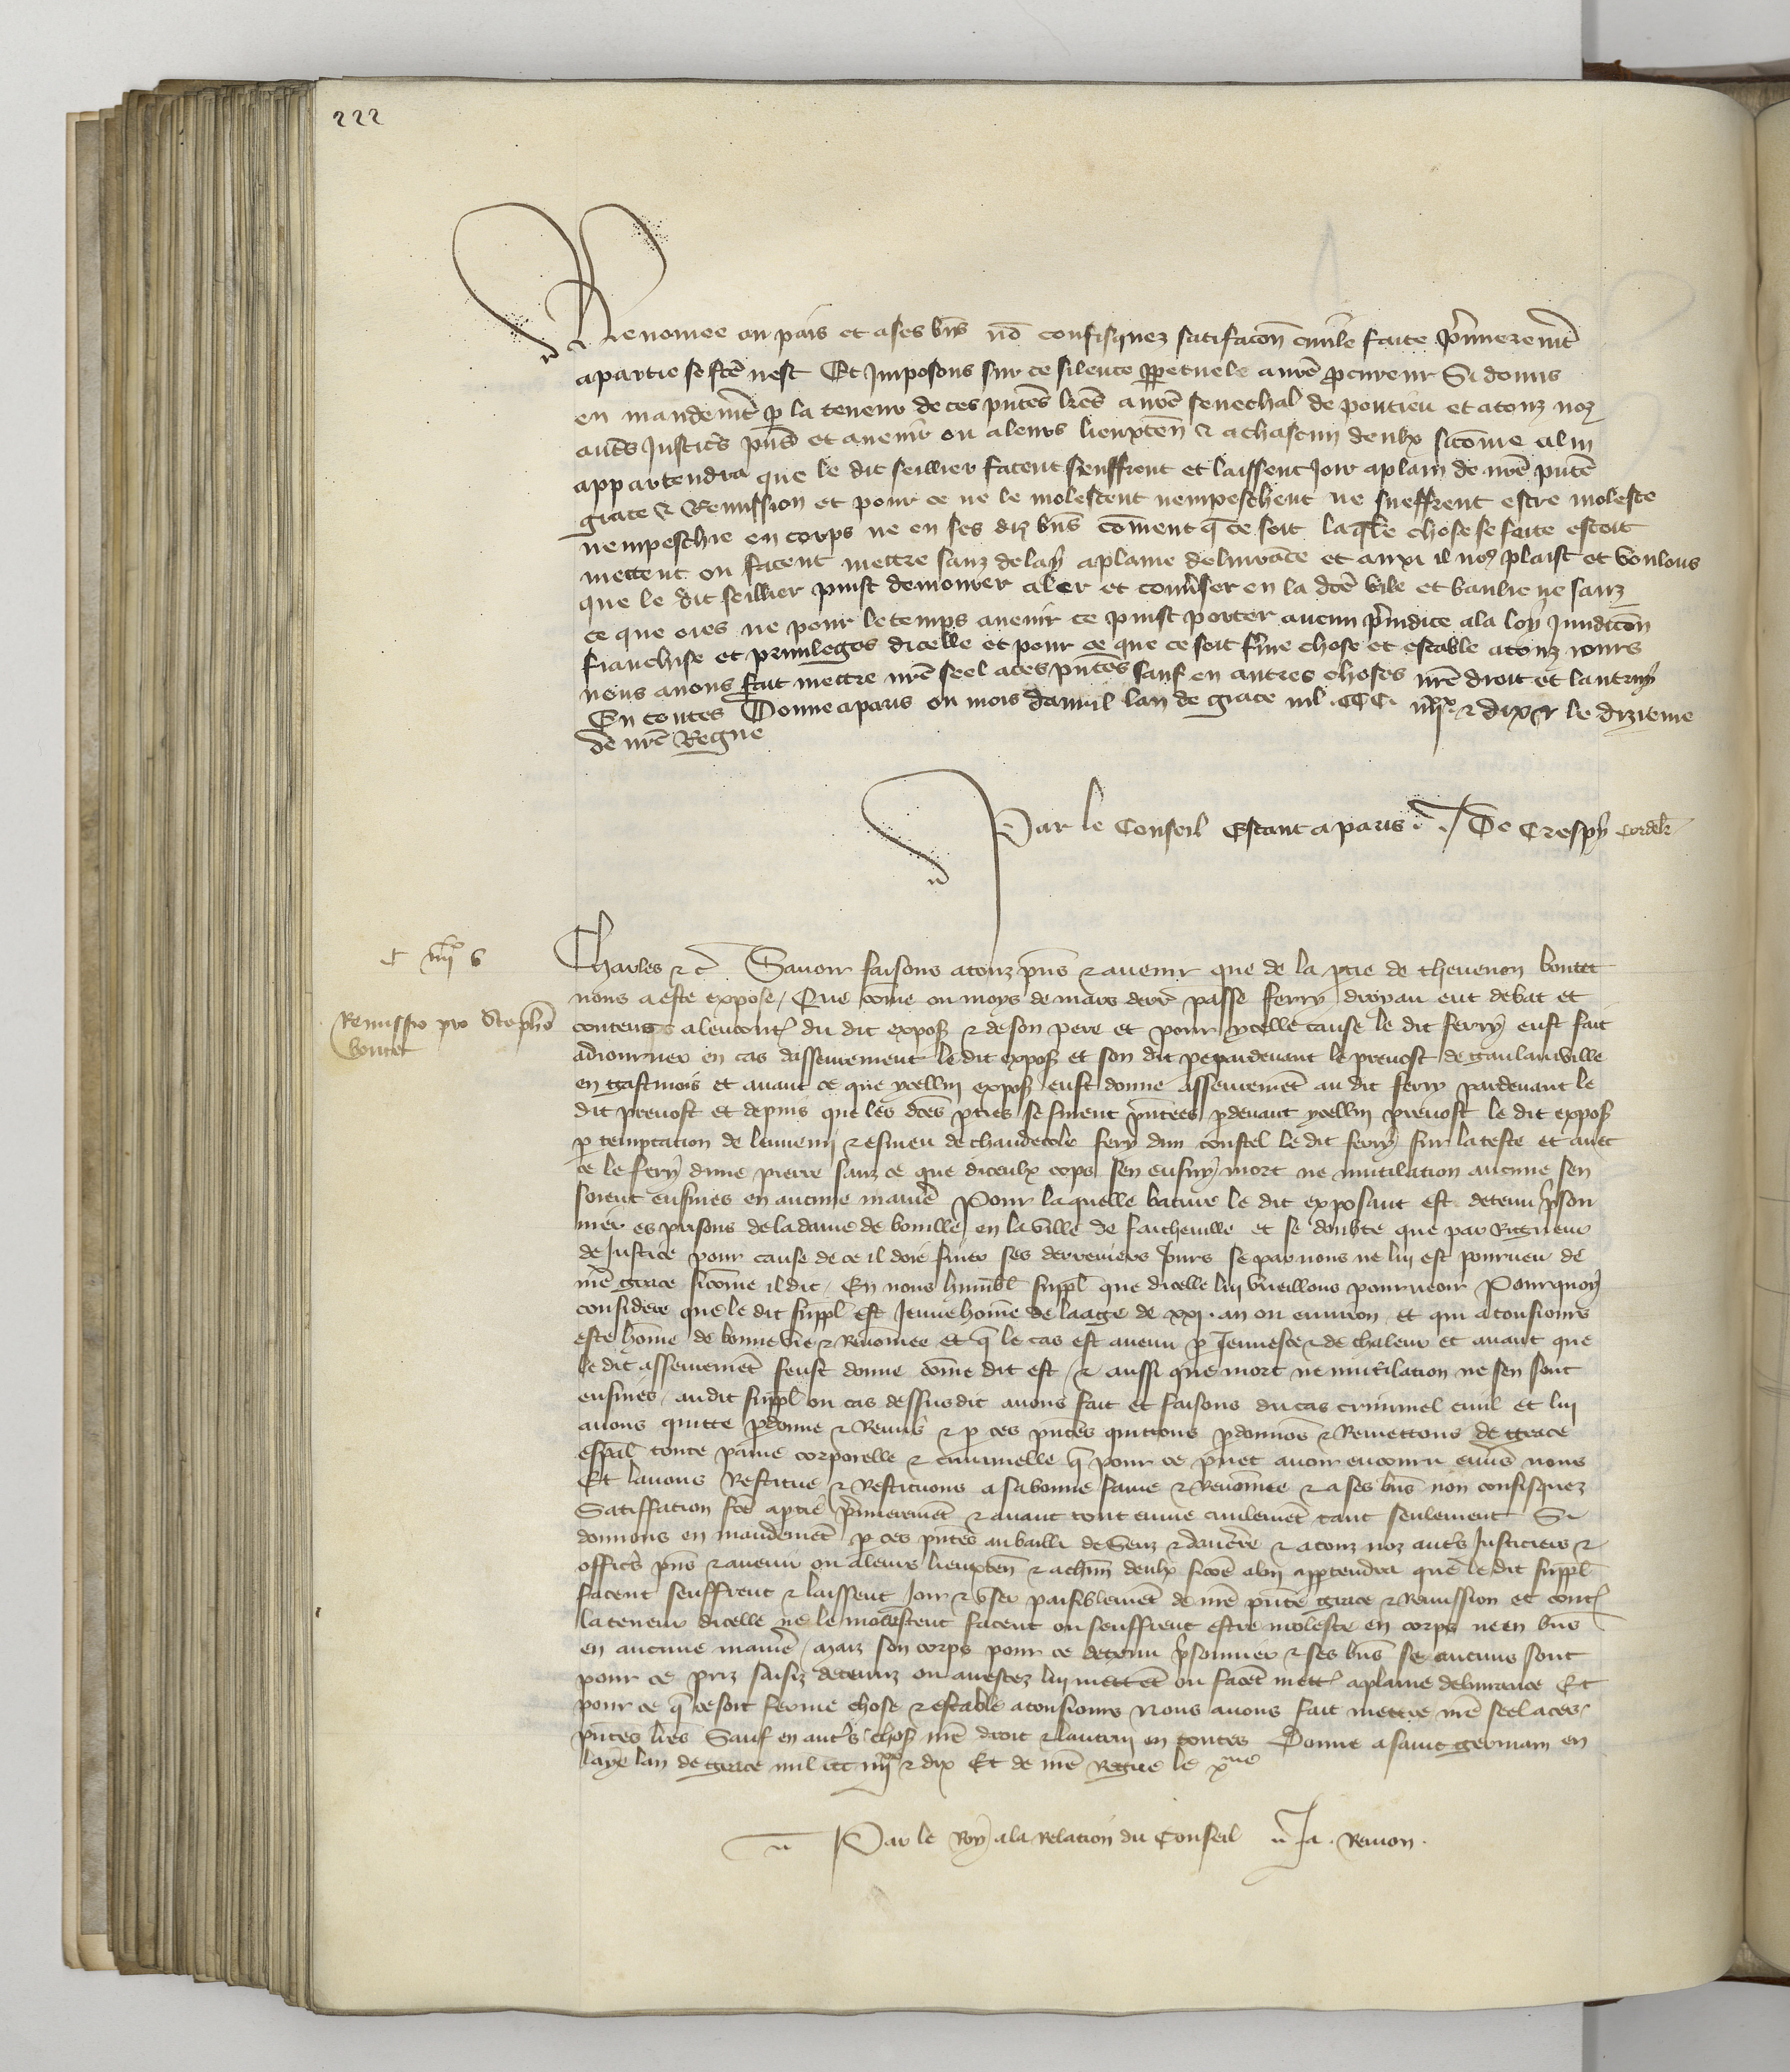 222
Renomee au pais et a ses bn̄s nō confisquez satifacōn ciuile faite p̄mierem̄t
a partie se fc̄e nest Et Imposons sur ce silence ppetuele a nr̄e pcureur Si donns
en mandem̄t p la teneur de ces pn̄tes lr̄es a nr̄e seneschal de pontieu et a touz noz
aut̄s Justic̄s pn̄s et auenir ou a leurs lieuxten̄ & a chascun deulx sicōme a lui
appartendra que le dit seillier facent seuffrent et laissent Joir a plain de nr̄e pn̄te
grace & Remission et pour ce ne le molestent nempeschent ne sueffrent estre moleste
nempeschie en corps ne en ses diz bn̄s cōment q̄ ce soit laq̄lle chose se faite estoit
mettent ou facent mettre sanz delay a plaine deliurāce et auxi il noꝰ plaist et voulons
que le dit seillier puist demourer aler et conūser en la dc̄e ville et banlieue sanz
ce que ores ne pour le temps auenir ce puist porter aucun p̄iudice a la loy Juridicōn
franchise et priuileges dicelle et pour ce que ce soit f̄me chose et estable a touz iours
nous auons fait mettre nr̄e seel a ces pn̄tes sauf en autres choses nr̄e droit et lautruy
En toutes Donne a paris ou mois dauril lan de grace mil .CCC. iiii xx & dix & le dizieme
de nr̄e Regne
Par le Conseil Estant a paris . De Crespy cordel̄r
C iiii xx v
Remissio pro Stephō
boutet
Charles &c̄ Sauoir faisons a touz pn̄s & auenir que de la ptie de theuenon boutet
nous a este expose / Que cōme ou moys de mars derr̄ passe ferry droyau eut debat et
contens a lencont̄ du dit expost̄ & de son pere et pour ycelle cause le dit ferry eust fait
adiourner en cas dasseurement le dit expost̄ et son dit pe pardeuant le preuost de gaulainville
en gastinois et auant ce que ycellui expost̄ eust donne asseuremēt au dit ferry pardeuant le
dit preuost et depuis que les dc̄es pties se fuient pn̄tees pdeuant ycellui preuost le dit expost̄
p temptation de lennemi & esmeu de chaudecole fery dun coustel le dit ferry sur la teste et auec
ce le fery dune pierre sanz ce que diceulx cops sen ensuy mort ne mutilation aucune sen
soient ensuies en aucune manīe Pour laquelle bature le dit exposant est detenu p̄son
nier es prisons de la dame de bouille en la ville de faicheuille et se doubte que par Rigueur
de Justice pour cause de ce il doie finer ses derreniers Jours se par nous ne lui est pourueu de
nr̄e grace sicōme il dit / En nous humbl̄ suppl̄ que dicelle lui vueillons pourueoir Pourquoy
considere que le dit suppl̄ est Jeune homē de laage de xxj. an ou enuiron et qui a tousiours
este hōme de bonne vie & Renomee et q̄ le cas est auenu p Jeunesce & de chaleur et auant que
le dit asseuremēt feust donne cōme dit est / & aussi que mort ne mutilation ne sen sont
ensuies / au dit suppl̄ ou cas dessusdit auons fait et faisons du cas criminel ciuil et lui
auons quitte pdonne & Remis & p ces pn̄tes quittons pdonnons & Remettons de grace
esp̄al toute paine corporelle & criminelle q̄ pour ce puet auoir encouru enūs nous
Et lauons Restitue & Restituons a sa bonne fame & Renōmee & a ses bn̄s non confisquez
Satiffation fc̄e a ptie p̄mieremēt & auant tout euure ciuilement tant seulement Si
donnons en mandemēt p ces pn̄tes au bailli de Senz & dauc̄erre & a touz noz aut̄s Justiciers &
offic̄s pn̄s & auenir ou a leurs lieuxten̄ & a chūn deulx sicōe a lui apptendra que le dit suppl̄
facent seuffrent & laissent Joir & vser paisiblement de nr̄e pn̄te grace & Remission et cont̄
la teneur dicelle ne le molestent facent ou seuffrent estre moleste en corps ne en bn̄s
en aucune manīe / maiz son corps pour ce detenu p̄sonnier & ses bn̄s se aucuns sont
pour ce priz saisiz detenuz ou arrestez lui mettēt ou facēt mett̄ a plaine deliurance Et
pour ce q̄ ce soit ferme chose & estable a tousiours Nous auons fait mettre nr̄e seel a ces
pn̄tes lr̄es Sauf en aut̄s chos̄ nr̄e droit & lautrui en toutes Donne a saint germain en
laye lan de grace mil ccc iiii xx & dix Et de nr̄e Regne le xme
Par le Roy a la Relation du Conseil Ja . Remon .